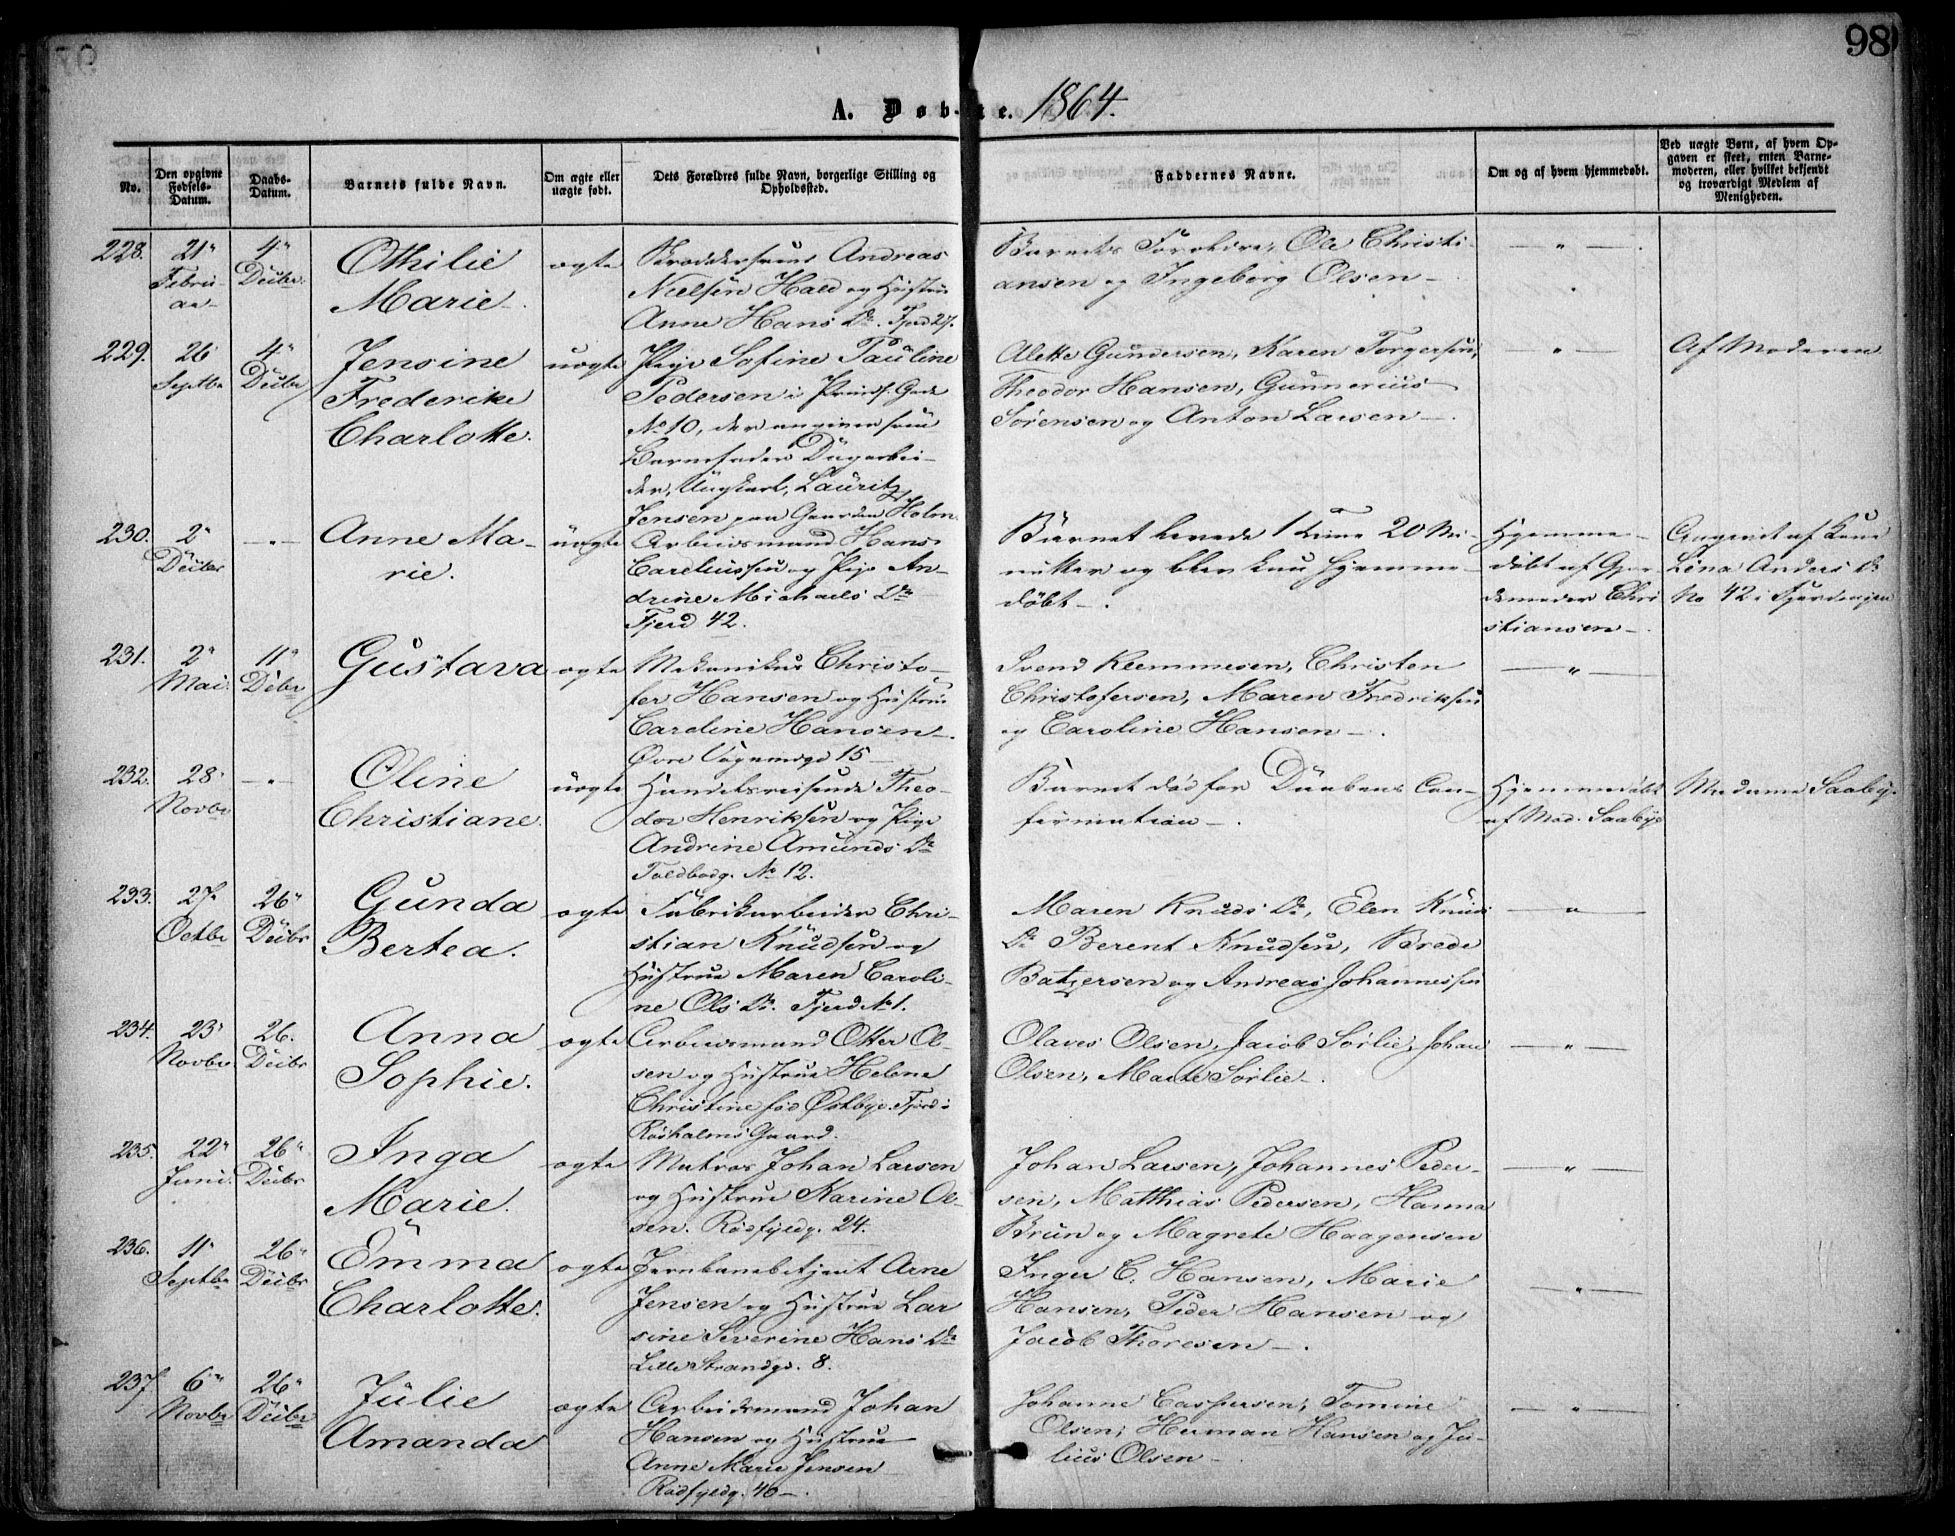 98
A. Døbte. 1864.
No.
Den opgivne
Fødsels-
Datum.
Daabs-
Datum.
Barnets fulde Navn.
Om ægte eller
uægte født.
Dets Forældres fulde Navn, borgerlige Stilling og
Opholdssted.
Faddernes Navne.
Om og af hvem hjemmedøbt.
Ved uægte Børn, af hvem Op-
gaven er skeet, enten Barne-
moderen, eller hvilket bekjendt
og troværdigt Medlem af
Menigheden.
228.
21"
Februar
4"
Decbr.
Othilie
Marie
ægte
Andreas
Nielsen Hald og Hustru
Anne Hans Dr. Fjerd 27.
Barnets Forældre, Ole Christi-
ansen og Ingeborg Olsen
229.
26
Septbr
4"
Decbr
Jensine
Frederike
Charlotte.
uægte
Pige Sofine Pauline
Pedersen i Prinds. Gade
No 10, der angiver som
Barnefader Dagarbei-
der, Ungkarl, Lauritz
Jensen paa Gaarden Holm.
Alette Gundersen, Karen Torgersen,
Theodor Hansen, Gunnerius
Sørensen og Anton Larsen
Af Moderen
230.
2"
Decbr
Anne Ma-
rie.
uægte
Arbeidsmand Hans
Careliussen og Pige An-
drine Michaels Dr
Fjerd 42.
Barnet levede 1 Time 20 Mi-
nutter og blev kun hjemme-
døbt
Hjemme-
døbt af Gjor-
demoder Chri
stiansen
Angivet af Kone
Lina Anders Dr
No 42 i Fjerdingen
231.
2"
Mai.
11"
Decbr
Gustava
ægte
Mekanikus Christo-
fer Hansen og Hustru
Caroline Hansen
Øvre Vognmdgd 15
Svend Klemmesen, Christen
Christofersen, Maren Fredriksen
og Caroline Hansen
232.
28"
Novbr
Oline
Christiane.
uægte
Handelsreisende Theo-
dor Henriksen og Pige
Andrine Amunds Dr
Toldbodg. No 12.
Barnet død før Daabens Con-
firmation
Hjemmedøbt
af Mad. Saabye
Madame Saabye.
233.
27"
Octbr
26"
Decbr
Gunda
Bertea.
ægte
Fabrikarbeider Chri-
stian Knudsen og
Hustrue Maren Caroli-
ne Ols Dr. Fjerd No 1.
Maren Knuds Dr, Elen Knuds
Dr Berent Knudsen, Brede
Batzersen og Andreas Johannessen
234.
23"
Novbr
26.
Decbr
Anna
Sophie.
ægte
Arbeidsmand Otter Ol-
sen og Hustrue Helene
Christine fød Østbye. Fjerd i
Røsholms Gaard.
Olaves Olsen, Jacob Sørlie, Johan
Olsen, Marte Sørlie
235.
22"
Juni.
26"
Decbr
Inga
Marie.
ægte
Matros Johan Larsen
og Hustrue Karine Ol-
sen. Rødfyldg. 24.
Johan Larsen, Johannes Peder-
sen, Matthias Pedersen, Hanna
Brun og Magrete Haagensen
236.
11"
Septbr
26"
Decbr
Emma
Charlotte.
ægte
Jernbanebetjent Arne
Jensen og Hustrue Lar
sine Severine Hans Dr
Lille Strandgd. 8.
Inger C. Hansen, Marie
Hansen, Peder Hansen og
Jacob Thoresen
237
6"
Novbr
26"
Decbr
Julie
Amanda
ægte
Arbeidsmand Johan
Hansen og Hustrue
Anne Marie Jensen
Rødfyldg. 40
Johanne Caspersen, Tomine
Olsen, Herman Hansen og Ju-
lius Olsen